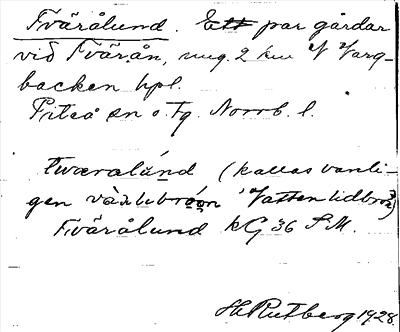 Tvärålund. Ett par gårdar
vid Tvärån, ung. 2 km V Varg-
backen hpl.
Piteå sn o. Tg. Norrb. l.
twæralúnd (kallas vanli-
gen 'Vattenlidbron')
Tvärålund kG 36 S.M.
H. Rutberg 1928